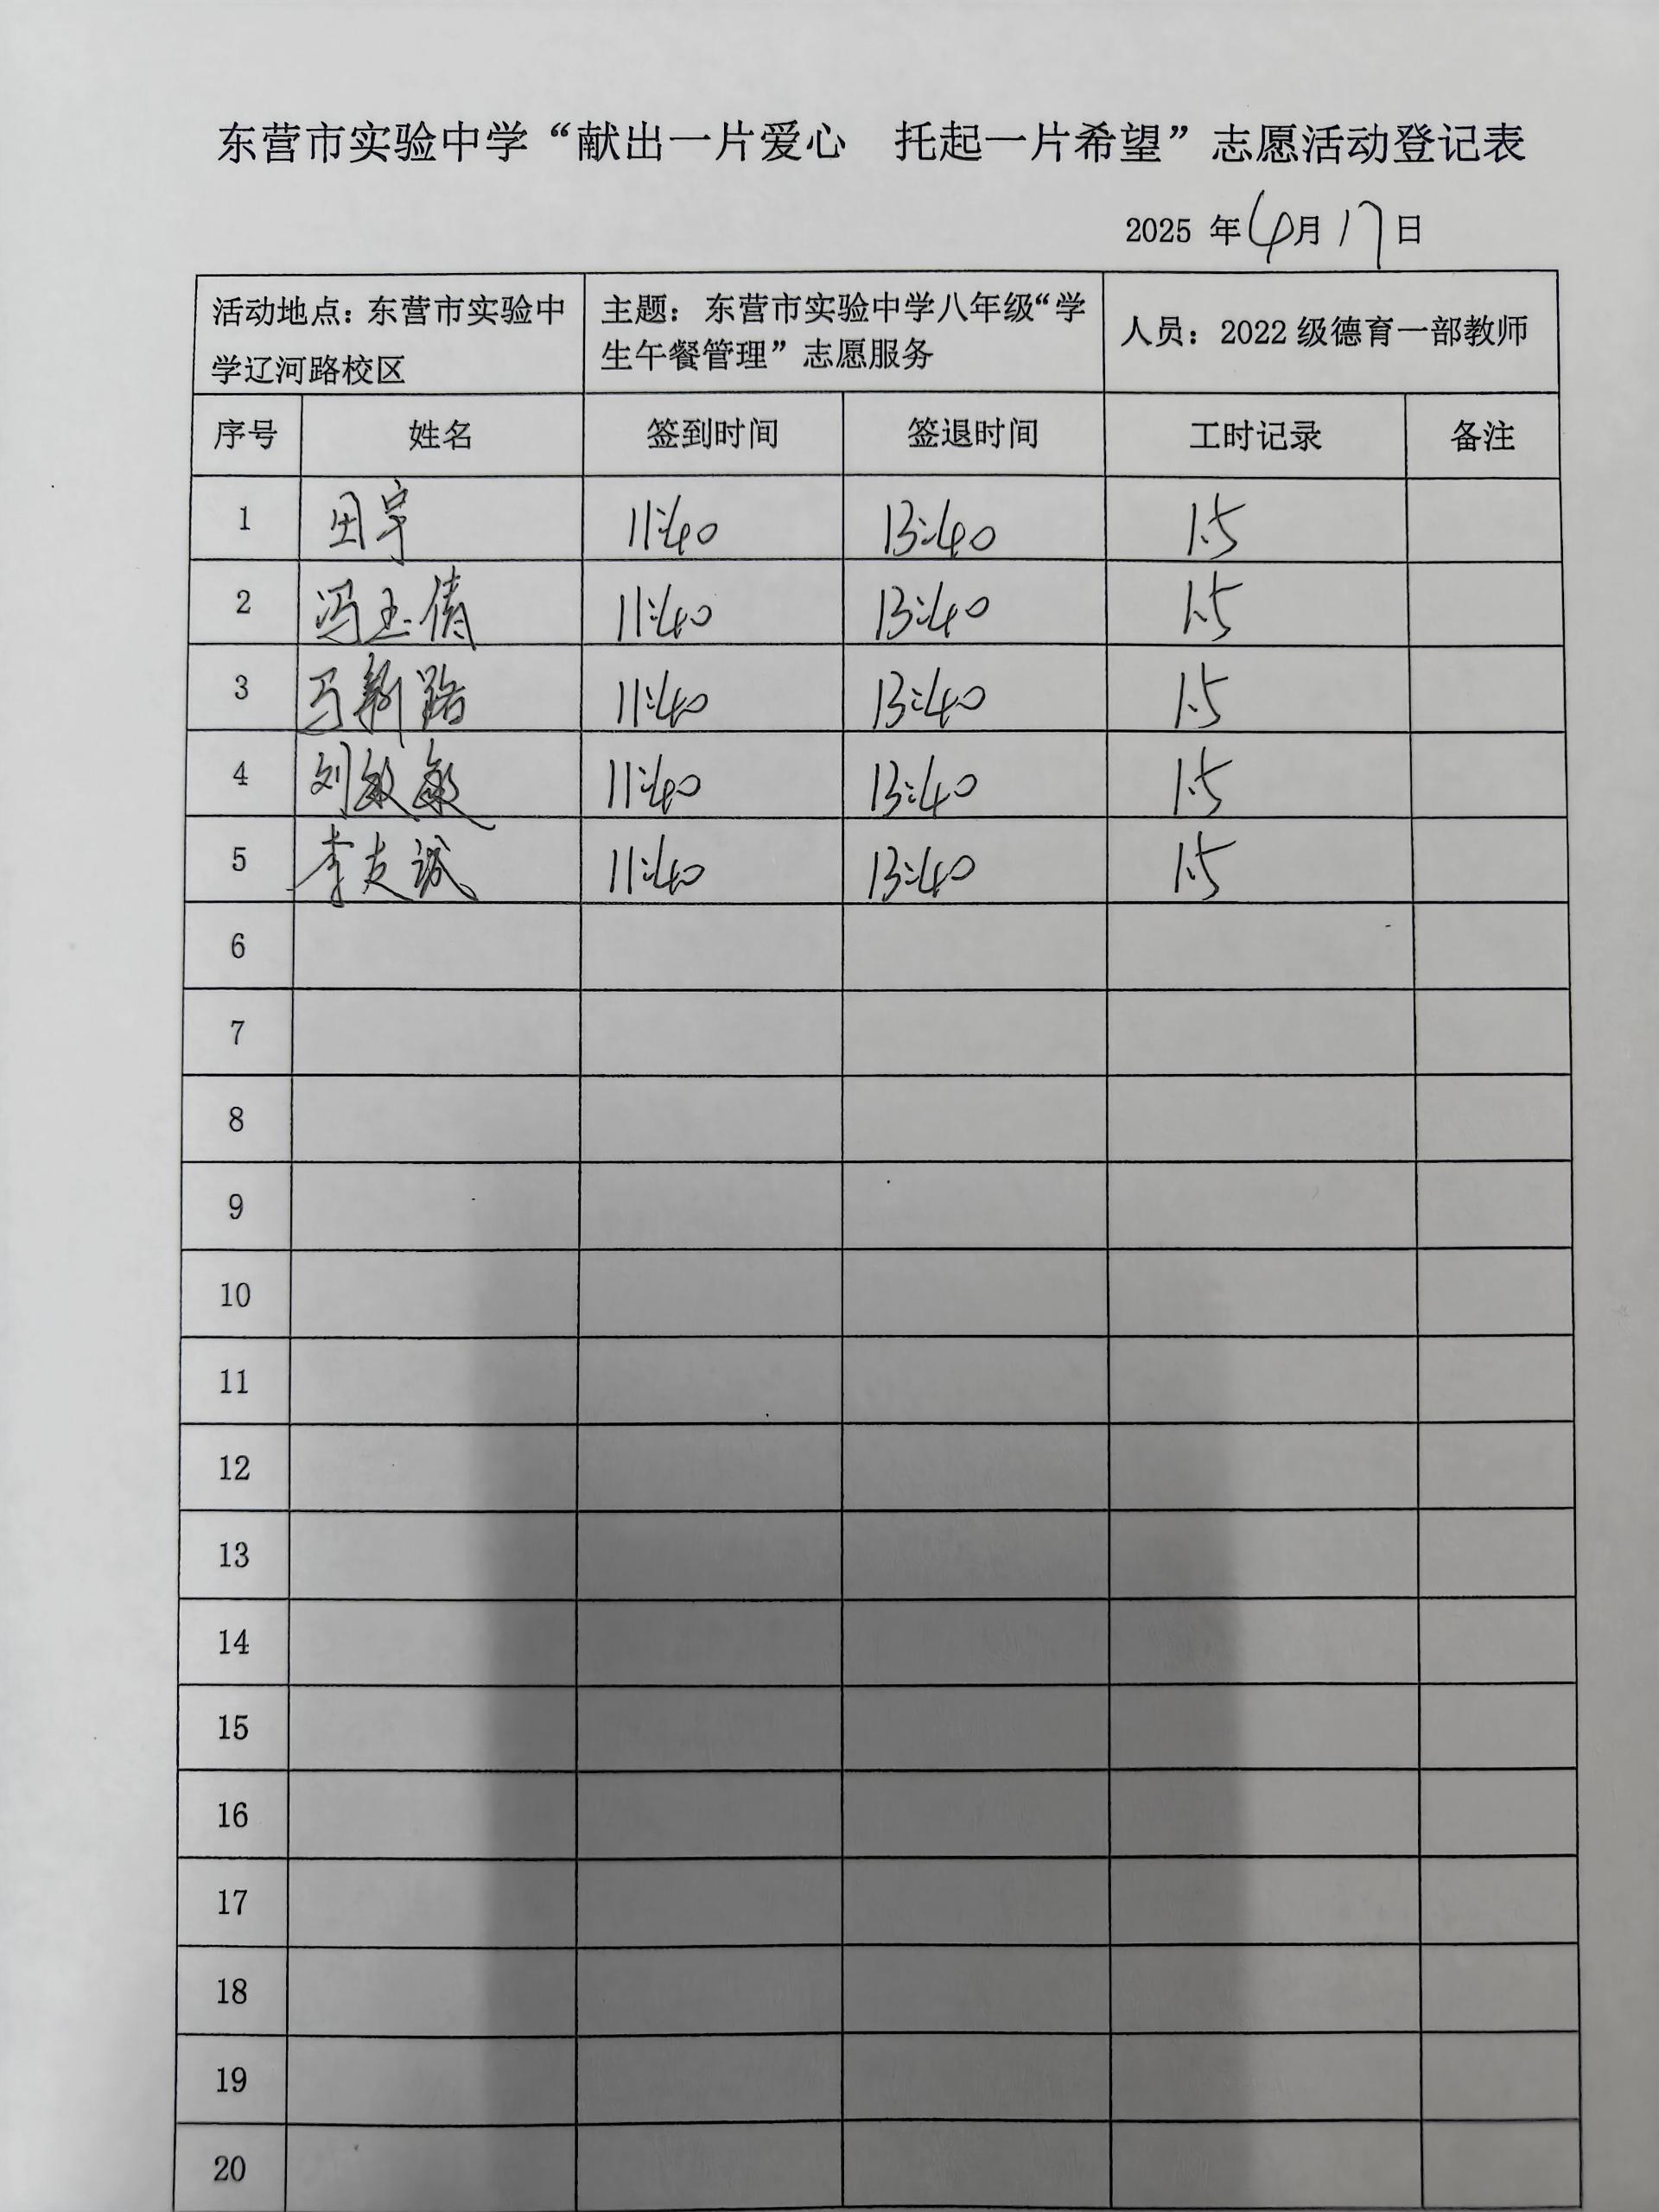 东营市实验中学“献出一片爱心 托起一片希望”志愿活动登记表
2025 年 4月 17日
活动地点：东营市实验中学辽河路校区 主题：东营市实验中学八年级“学生午餐管理”志愿服务 人员：2022 级德育一部教师
序号 姓名 签到时间 签退时间 工时记录 备注
1 田宇 11:40 13:40 1.5
2 冯玉倩 11:40 13:40 1.5
3 马新路 11:40 13:40 1.5
4 刘敏敏 11:40 13:40 1.5
5 李友诚 11:40 13:40 1.5
6
7
8
9
10
11
12
13
14
15
16
17
18
19
20